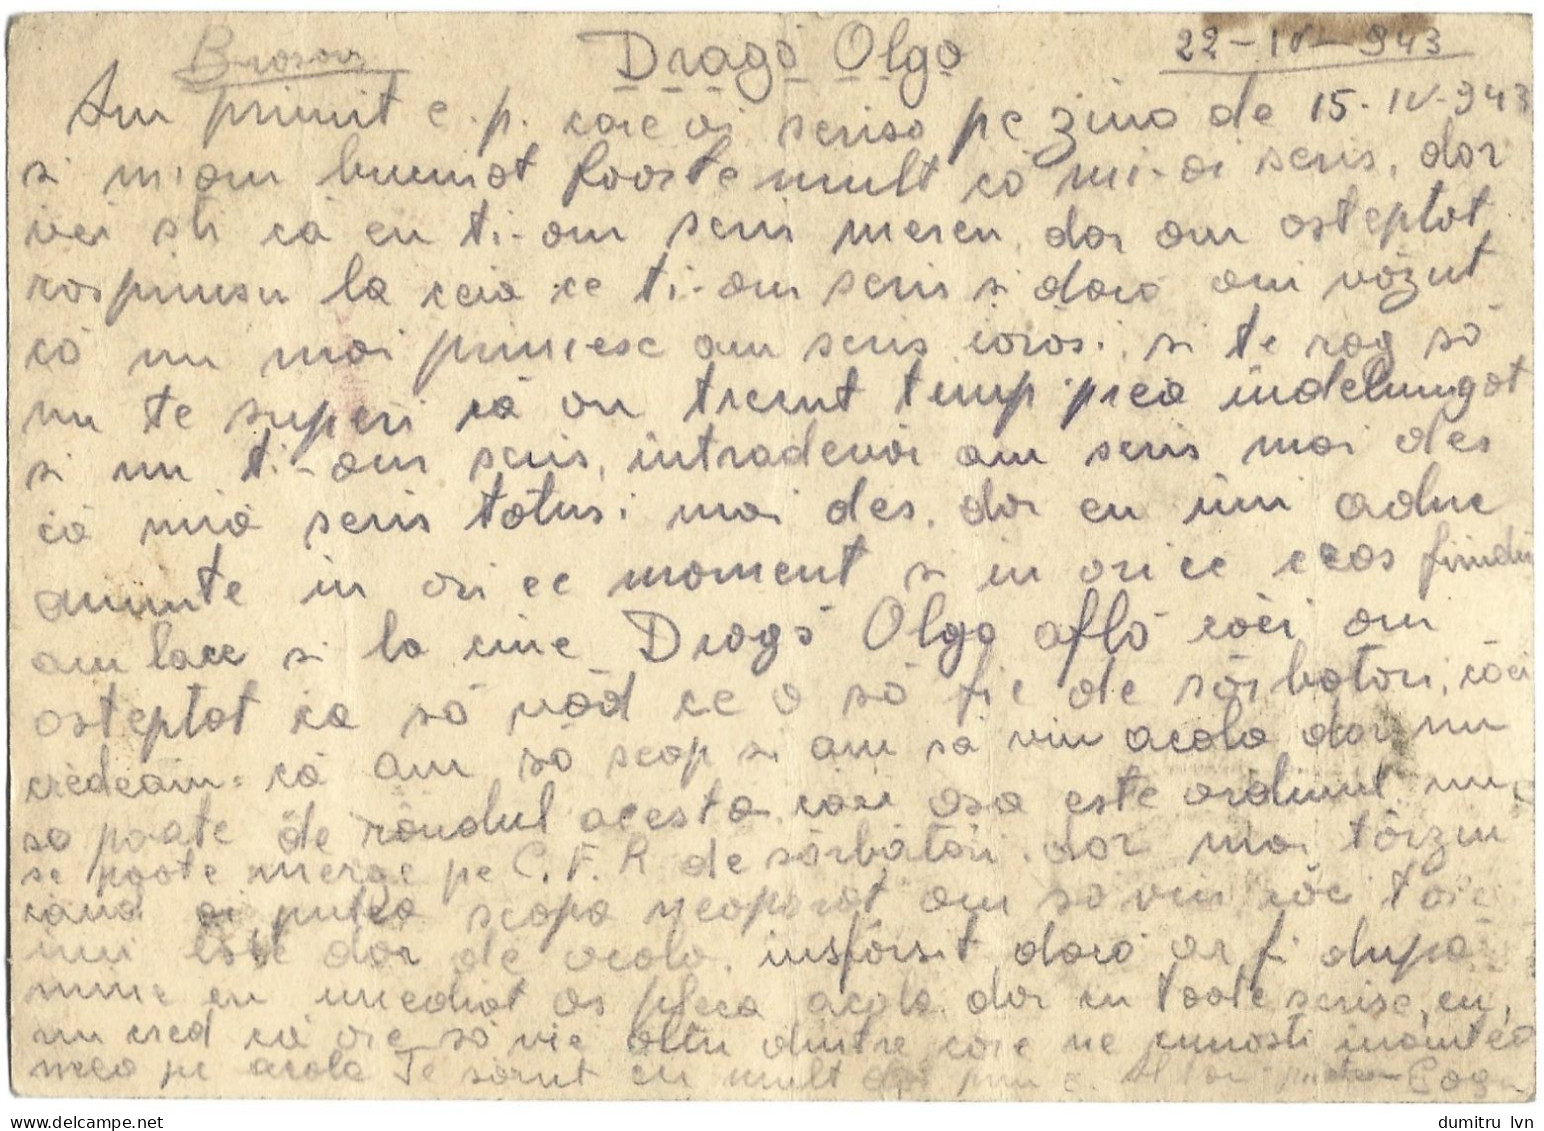 Brasov
Dragă Olga
22-IV-943
Am primit c.p. care ai scriso pe ziua de 15-IV-943
si miam bucurat foarte mult că mi-ai scris, dar
vei sti că eu ti-am scris mereu, dar am asteptat
raspunsu la ceia ce ti-am scris si dacă am văzut
că nu mai primesc am scris iarăsi, si te rog să
nu te superi că au trecut timp prea îndelungat
si nu ti-am scris, intradevăr am scris mai des
că mia scris totusi mai des, dar eu îmi aduc
aminte in ori ce moment si in ori ce ceas fiindu
am lace si la cine Dragă Olga află căci am
asteptat ca să văd ce o să fie de sărbatori, căci
credeam că am să scap si am să vin acolo dar nu
sa poate de rândul acesta, căci asa este ordinul nu
se poate merge pe C.F.R de sărbători, dar mai târziu
cănd ai putea scapa neaparat am să vin căc tare
imi este dor de acolo, insfărsit dacă ar fi după
mine eu imediat as pleca acolo dar cu toate scrise, eu,
nu cred că are să vie altu dintre care ne cunosti inaintea
mea pe acolo Te sarut cu mult dor
dumitru lvn